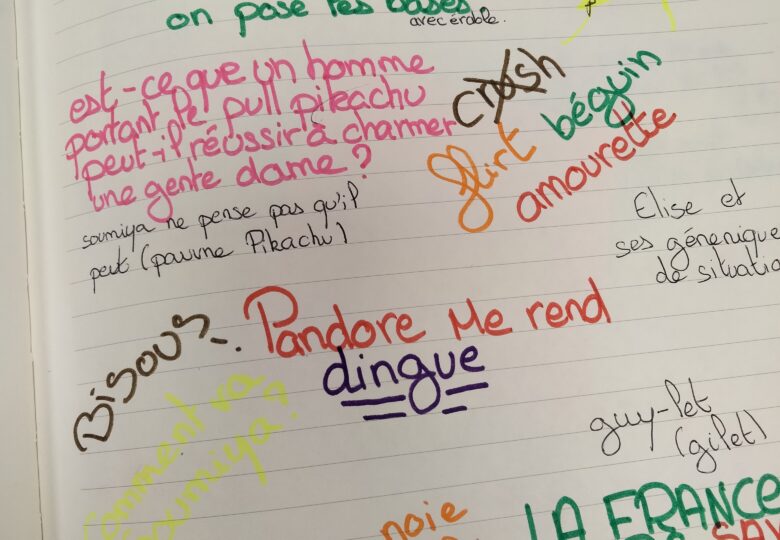 on pose les bases
avec érable.
est-ce que un homme
portant le pull pikachu
peut-il réussir à charmer
une gente dame ?
soumiya ne pense pas qu'il
peut (pauvre Pikachu)
crush
flirt béguin
amourette
Elise et
ses génerique
de situatio
Bisous
Pandore Me rend
dingue
Comment va
soumiya ?
guy-let
(gilet)
noie
LA FRANCE